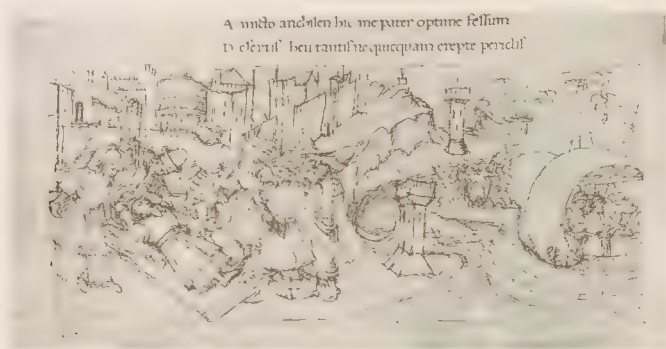 A mitto anchisen hic me pater optume fessum
D eseris heu tantis ne quicquam erepte periclis